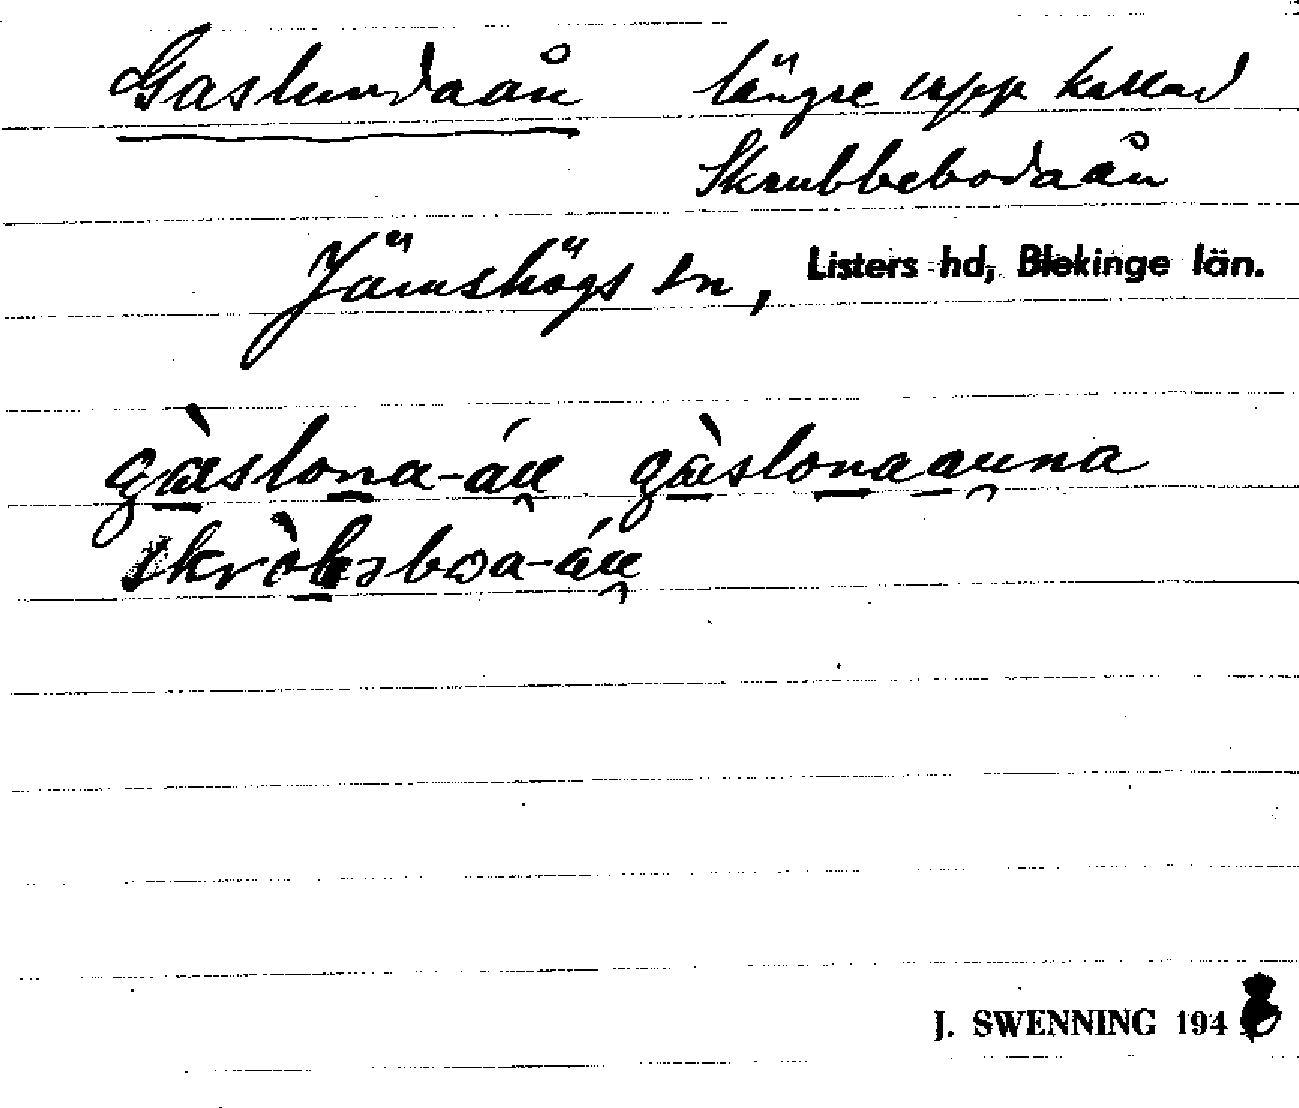 Gaslundaån längre upp kallad
Skrubbebodaån
Jämshögs sn, Listers hd, Blekinge län.
gàslona-áu gàslonaauna
skròbəboa-áu
J. SWENNING 194